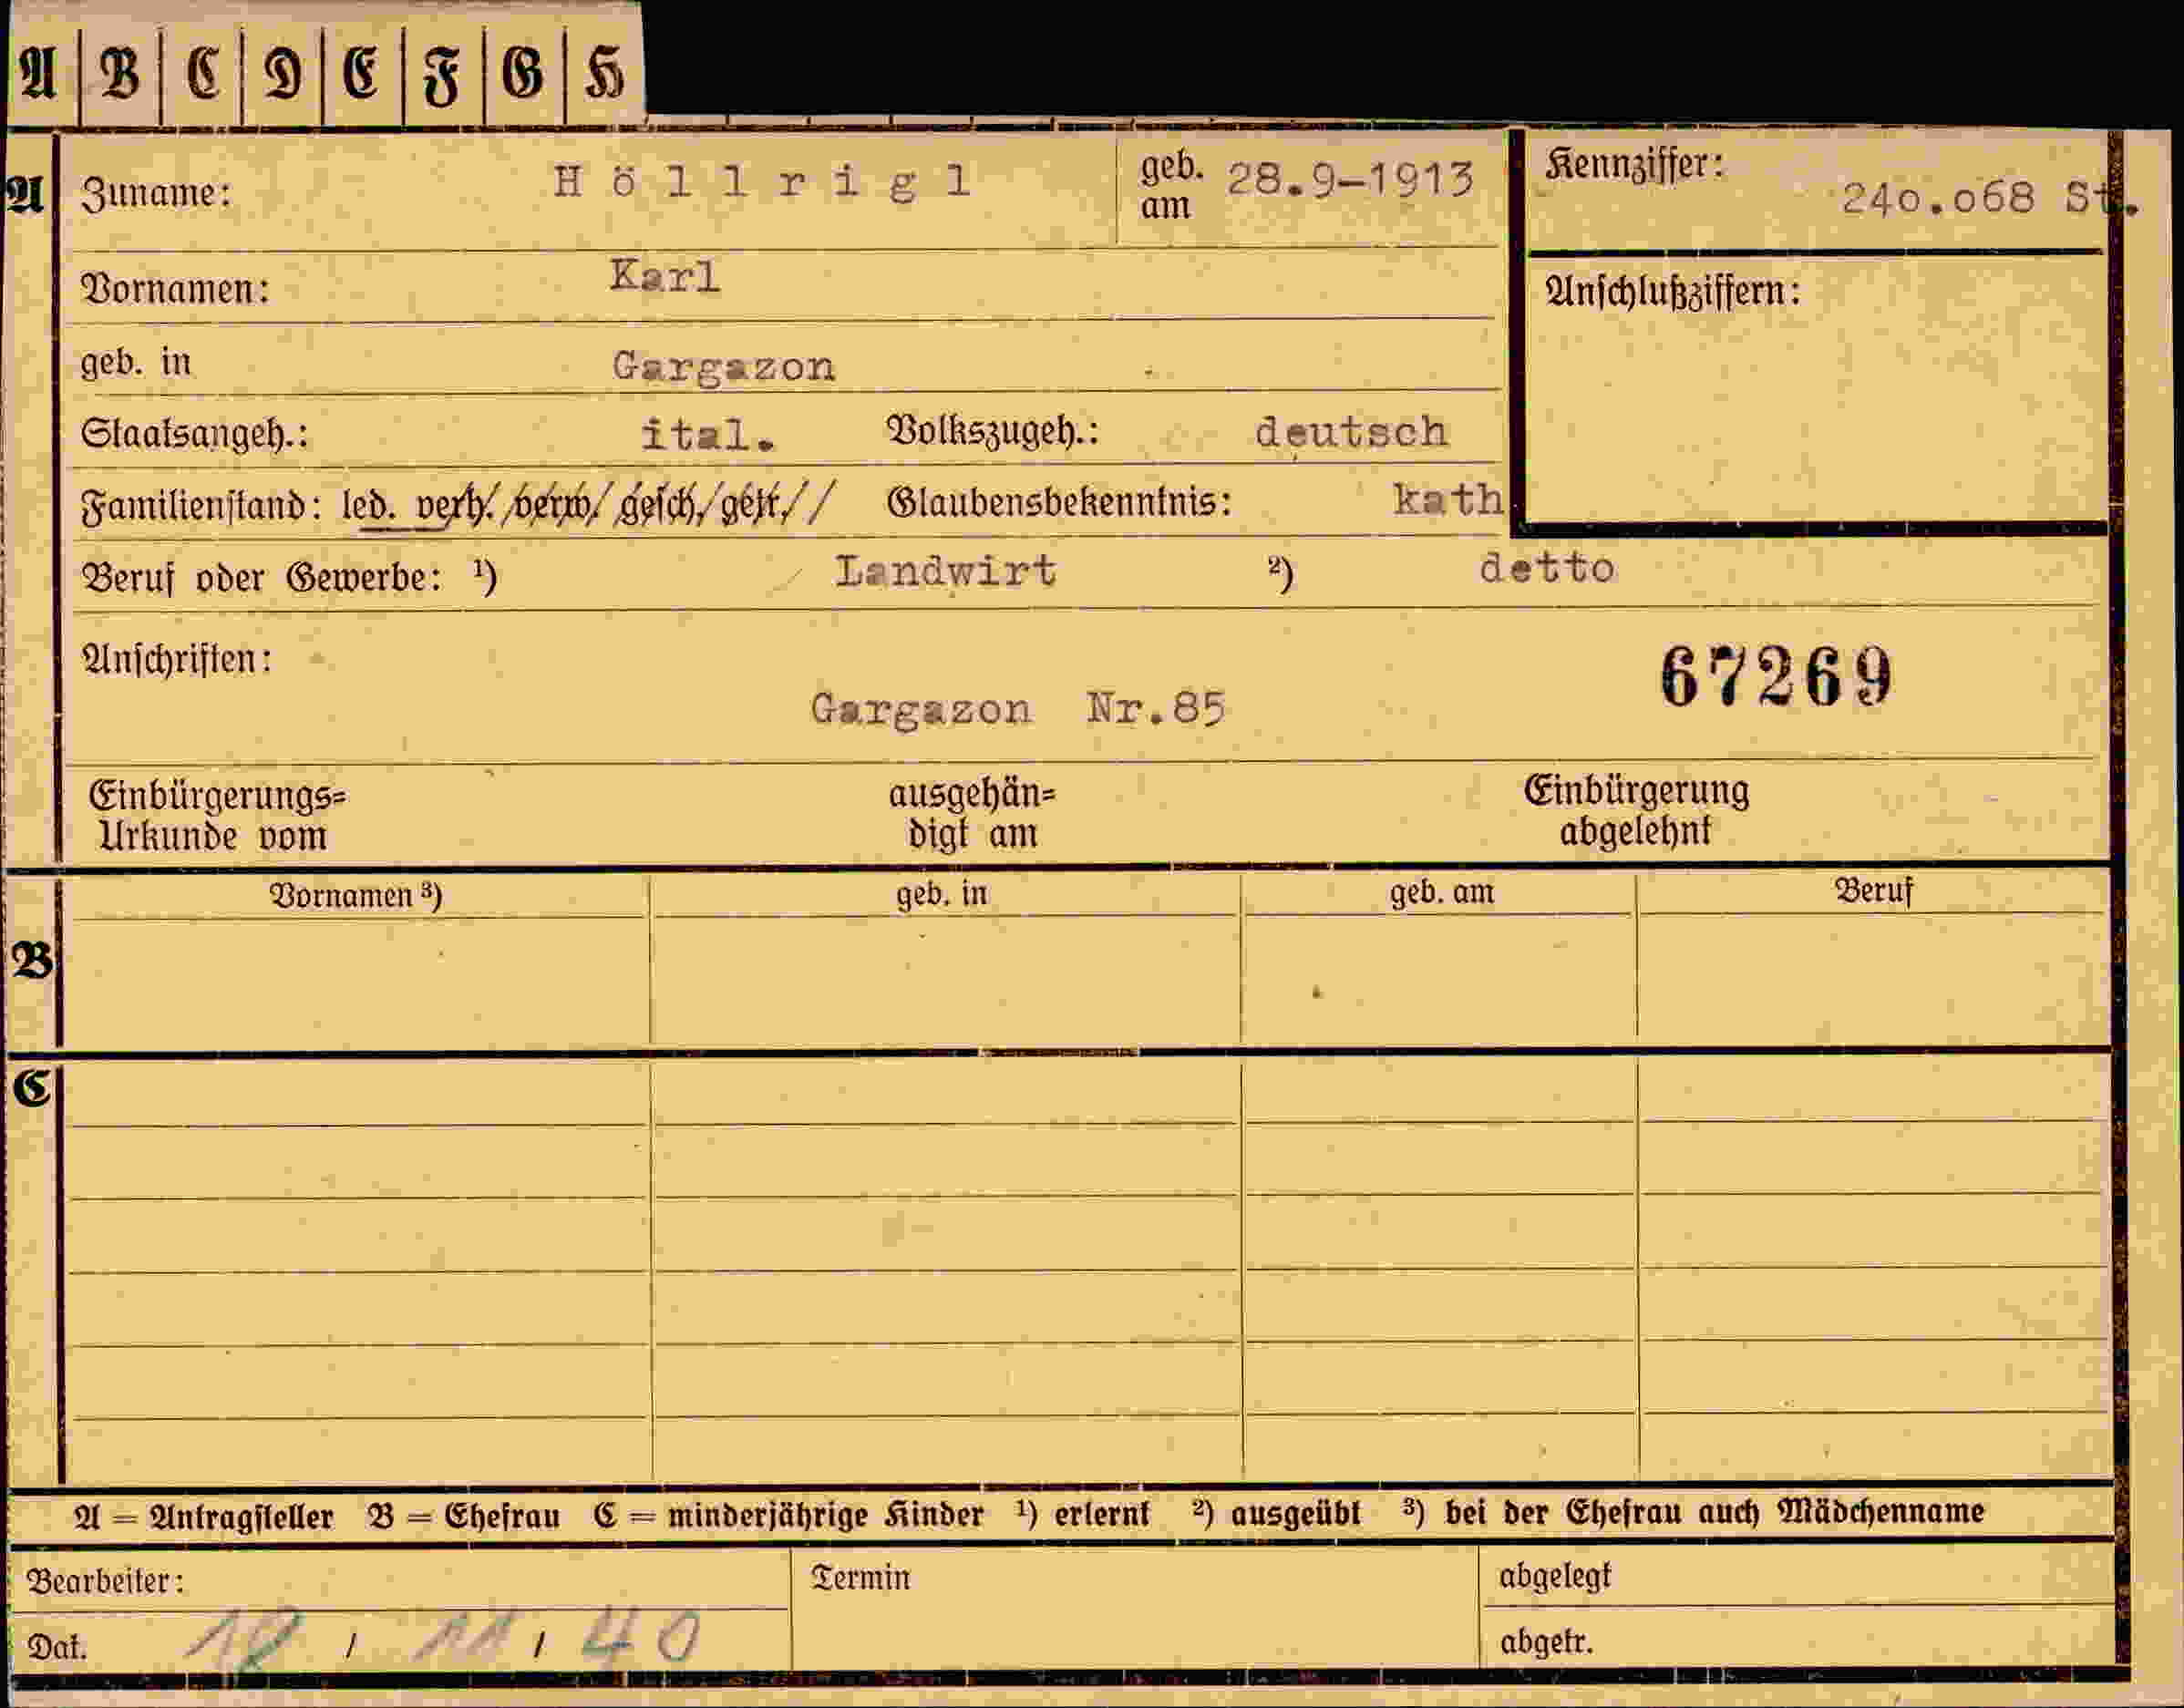 A B C D E F G H
A Zuname: Höllrigl geb. am 28.9-1913 Kennziffer: 240.068 St.
Vornamen: Karl Anschlußziffern:
geb. in Gargazon
Staatsangeh.: ital. Volkszugeh.: deutsch
Familienstand: led. verh. verw. gesch. getr. Glaubensbekenntnis: kath
Beruf oder Gewerbe: ¹) Landwirt ²) detto
Anschriften: 67269
Gargazon Nr.85
Einbürgerungs= ausgehän= Einbürgerung
Urkunde vom digt am abgelehnt
Vornamen ³) geb. in geb. am Beruf
B
C
A = Antragsteller B = Ehefrau C = minderjährige Kinder ¹) erlernt ²) ausgeübt ³) bei der Ehefrau auch Mädchenname
Bearbeiter: Termin abgelegt
Dat. / 11 / 40 abgetr.